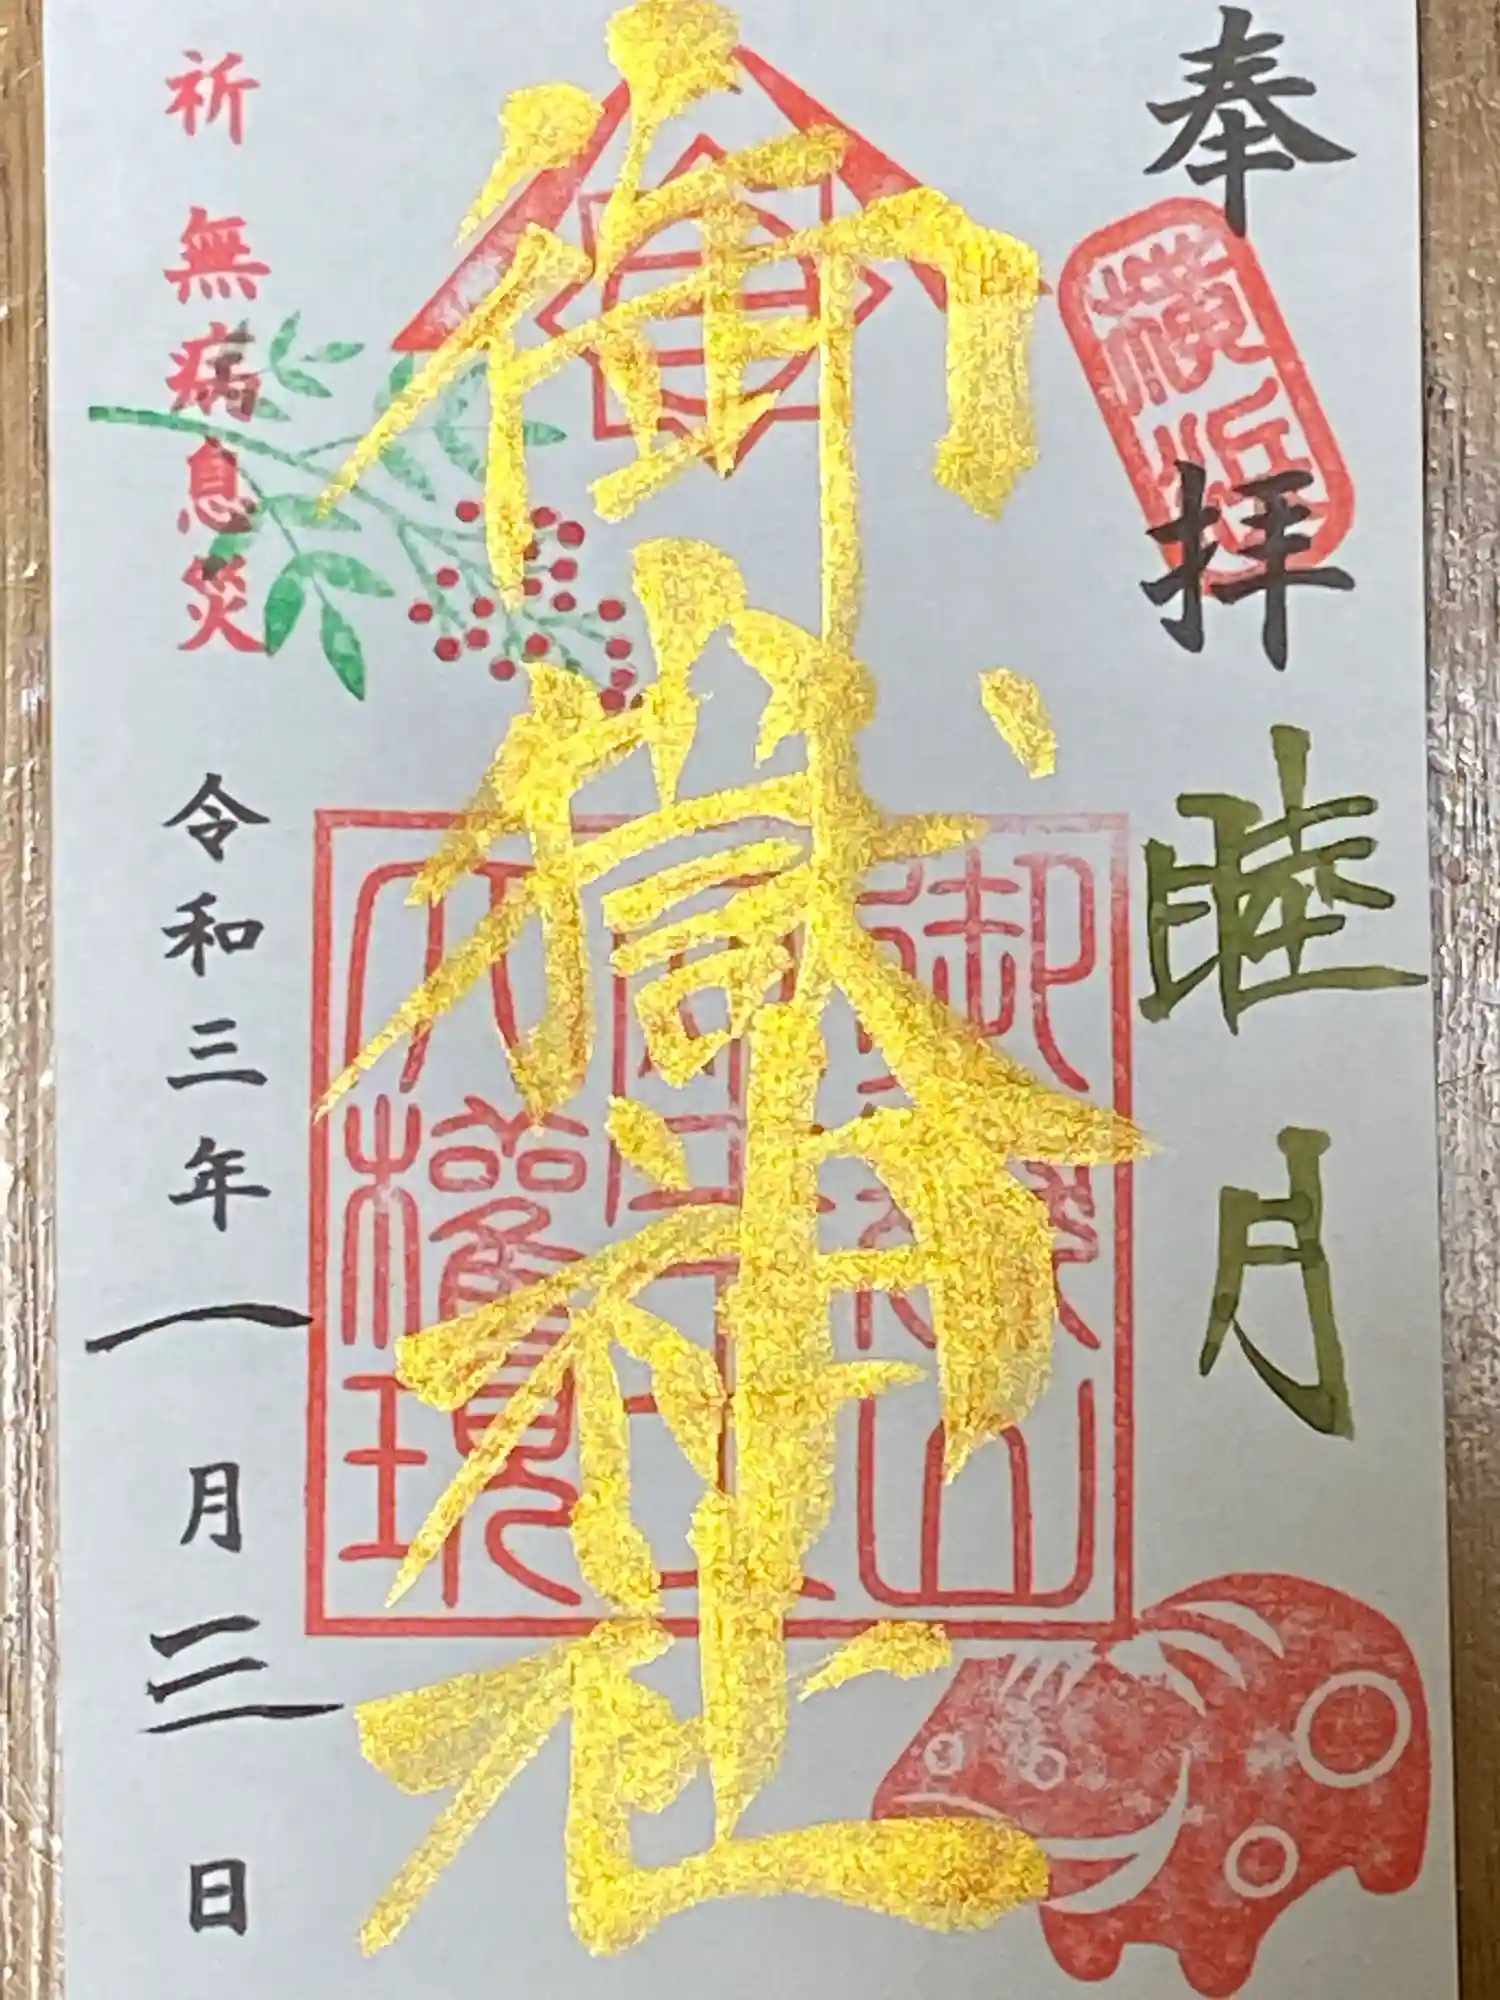 奉拝
横浜
睦月
御嶽神社
祈 無病息災
令和三年一月三日